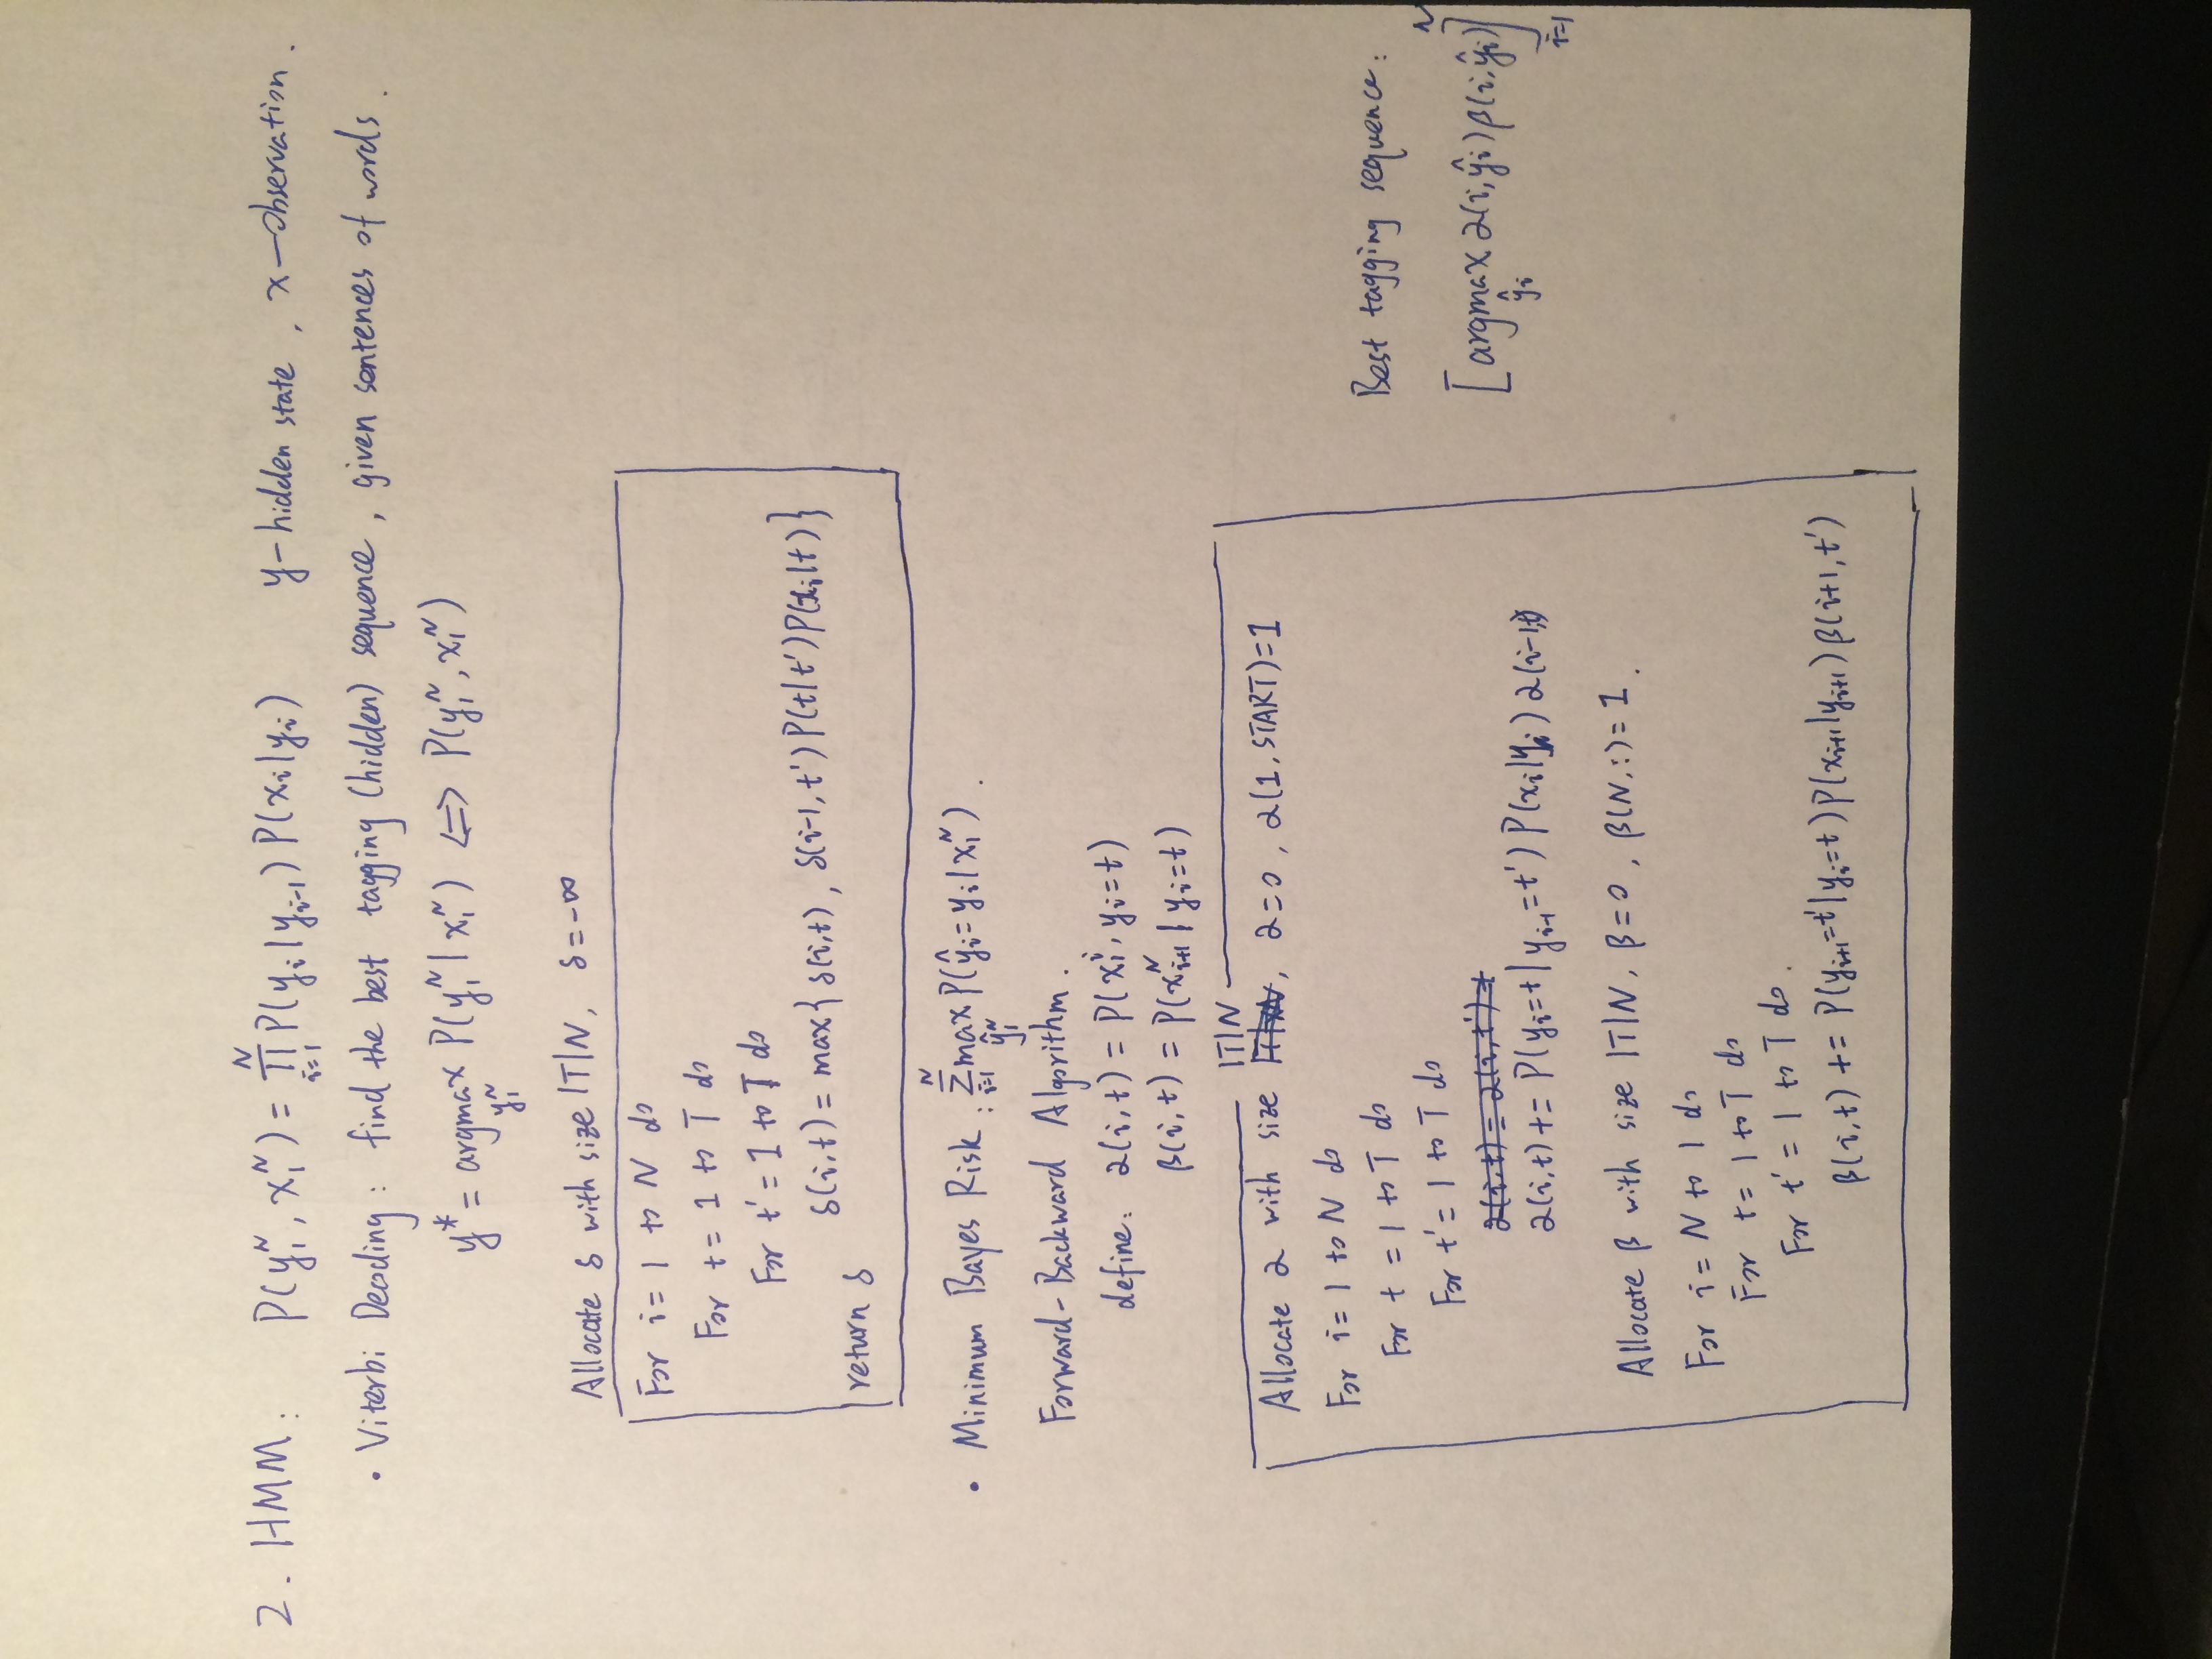 2. HMM: P(y₁ᴺ, x₁ᴺ) = ∏ᵢ₌₁ᴺ P(yᵢ|yᵢ₋₁) P(xᵢ|yᵢ) y-hidden state, x-observation.
• Viterbi Decoding: find the best tagging (hidden) sequence, given sentences of words.
y* = argmax_{y₁ᴺ} P(y₁ᴺ | x₁ᴺ) <=> P(y₁ᴺ, x₁ᴺ)
Allocate δ with size |T|N, δ=-∞
For i= 1 to N do
For t= 1 to T do
For t' = 1 to T do
δ(i,t) = max{ δ(i,t), δ(i-1,t') P(t|t') P(xᵢ|t) }
return δ
• Minimum Bayes Risk: Σᵢ₌₁ᴺ max_{ŷ₁ᴺ} P(ŷᵢ=yᵢ|x₁ᴺ).
Forward-Backward Algorithm.
define: α(i,t) = P(x₁ⁱ, yᵢ=t)
β(i,t) = P(xᵢ₊₁ᴺ | yᵢ=t)
|T|N
Allocate α with size , α=0, α(1,START)=1
For i= 1 to N do
For t = 1 to T do
For t' = 1 to T do
α(i,t) = α(i,t') +
α(i,t) += P(yᵢ=t|yᵢ₋₁=t') P(xᵢ|yᵢ) α(i-1,t)
Best tagging sequence:
[argmax_{ŷᵢ} α(i,ŷᵢ) β(i,ŷᵢ)]ᵢ₌₁ᴺ
Allocate β with size |T|N, β=0, β(N,:)=1.
For i= N to 1 do
For t= 1 to T do
For t' = 1 to T do.
β(i,t) += P(yᵢ₊₁=t'|yᵢ=t) P(xᵢ₊₁|yᵢ₊₁) β(i+1,t')